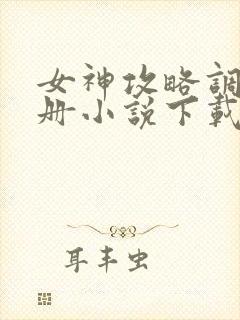 女神攻略調
册小說下載
耳丰虫